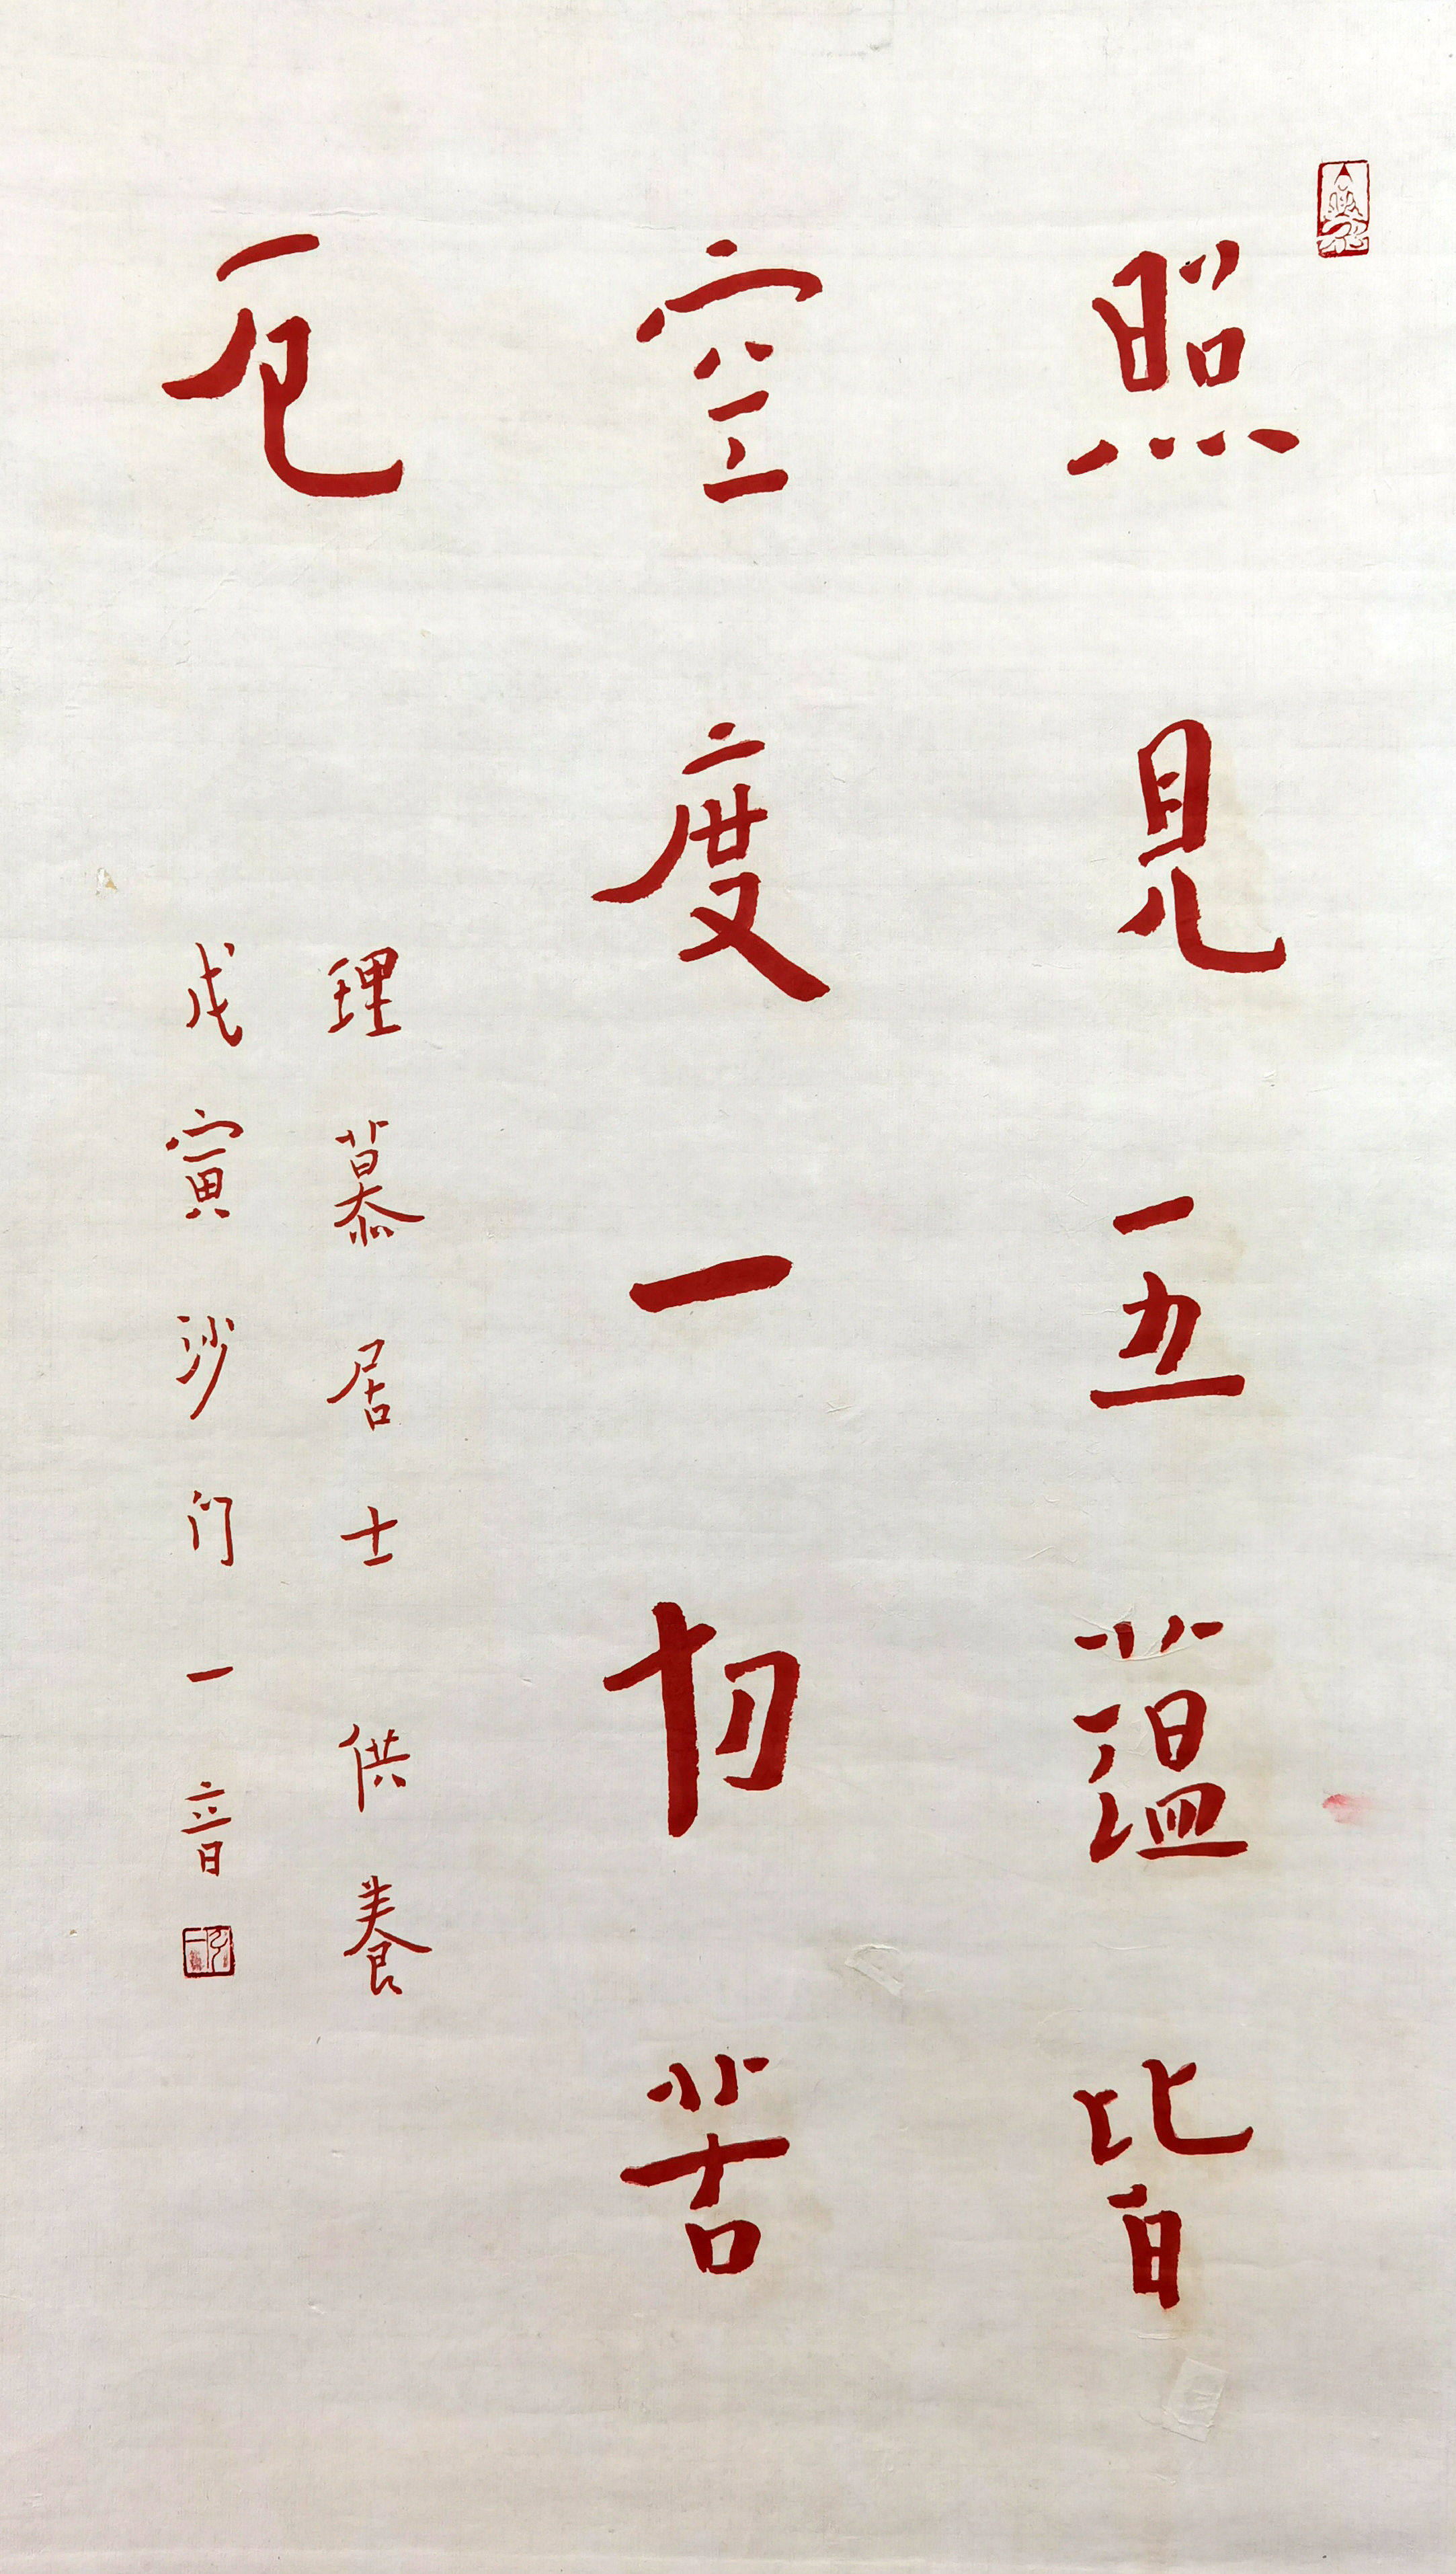 照見五蘊皆
空度一切苦
厄
理慕居士供養
戊寅沙门一音